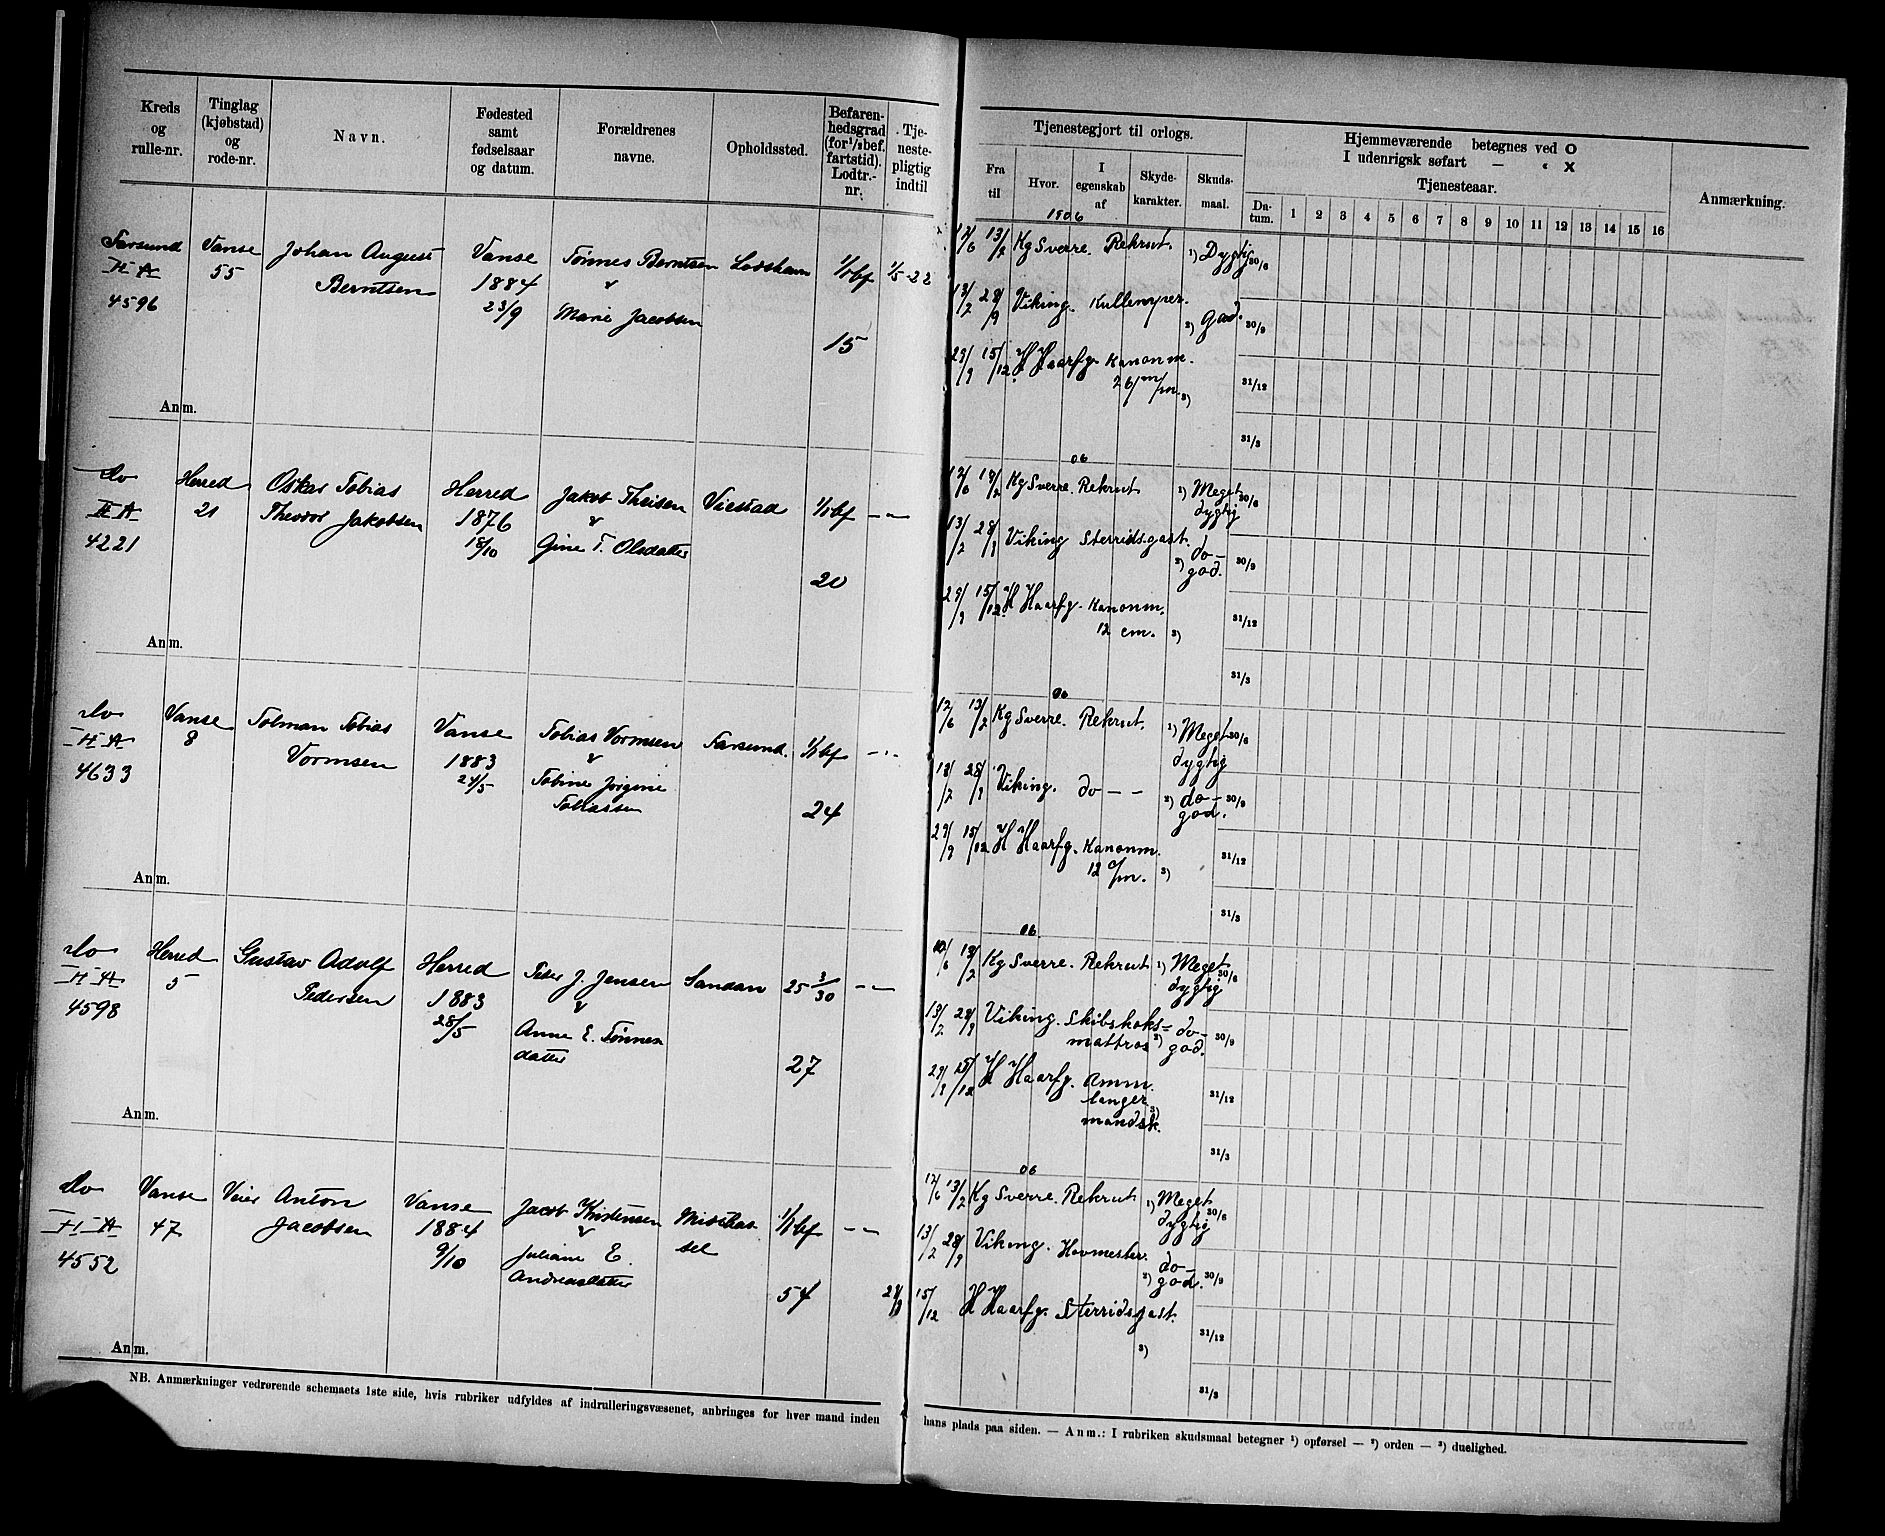 Kreds og rulle-nr.
Tinglag (kjøbstad) og rode-nr.
Navn.
Fødested samt fødselsaar og datum.
Forældrenes navne.
Opholdssted.
Befarenhedsgrad (for 1/1 bef. fartstid). Lodtr.-nr.
Tjenestepligtig indtil
Tjenestegjort til orlogs.
Fra til
Hvor.
I egenskab af
Skydekarakter.
Skudsmaal.
Hjemmeværende betegnes ved O
I udenrigsk søfart — « X
Tjenesteaar.
Datum. 1 2 3 4 5 6 7 8 9 10 11 12 13 14 15 16
Anmærkning.
Farsund
II A
4596
Vanse
55
Johan August
Berntsen
Vanse
1884
23/9
Tønnes Berntsen
v
Marie Jacobsen
Lodshavn
1/1 bf
15
1/5-22
1906
12/6 13/2 Kg Sverre. Rekrut. 1) Dygtig 30/6
13/2 28/9 Viking. Kullemper. 2) god. 30/9
29/9 15/12 H Haarfg. Kanonm.
26 m/m. 3)
31/12
31/3
Anm.
do
II A
4221
Herred
21
Oskar Tobias
Theodor Jakobsen
Herred
1876
18/10
Jakob Theisen
v
Gine T. Olsdatter
Viestad
1/1 bf
20
— " —
06
12/6 13/2 Kg Sverre. Rekrut 1) Meget dygtig 30/6
13/2 28/9 Viking Sterridsgast. 2) do — god. 30/9
29/9 15/12 H Haarfg. Kanonm.
12 cm. 3)
31/12
31/3
Anm.
do
II A
4633
Vanse
8
Tolman Tobias
Vormsen
Vanse
1883
24/5
Tobias Vormsen
v
Tobine Jørgine
Tobiassen
Farsund.
1/1 bf
24
— " —
06
12/6 13/2 Kg Sverre. Rekrut. 1) Meget dygtig 30/6
13/2 28/9 Viking. do — — 2) do — god. 30/9
29/9 15/12 H Haarfg. Kanonm.
12 c/m. 3)
31/12
31/3
Anm.
do
II A
4598
Herred
5
Gustav Adolf
Pedersen
Herred
1883
28/5
Peder J. Jensen
v
Anne E. Tønnes
datter
Sandan
25 3/30
27
— " —
06
10/6 13/2 Kg Sverre. Rekrut 1) Meget dygtig 30/6
13/2 28/9 Viking. Skibskoks=
mattros 2) do — god. 30/9
29/9 15/12 H Haarfg. Amm.
langer 3)
mandsk.
31/12
31/3
Anm.
do
II A
4552
Vanse
47
Anton
Jacobsen
Vanse
1884
9/10
Jacob Kristensen
v
Juliane E.
Andreasdatter
1/1 bf
54
— " —
06
12/6 13/2 Kg Sverre. Rekrut 1) Meget dygtig 30/6
13/2 28/9 Viking. Hovmester. 2) do — god. 30/9
29/9 15/12 H Haarfg. Sterridsgast.
3)
31/12
31/3
Anm.
NB. Anmærkninger vedrørende schemaets 1ste side, hvis rubriker udfyldes af indrulleringsvæsenet, anbringes for hver mand inden
hans plads paa siden. — Anm.: I rubriken skudsmaal betegner 1) opførsel — 2) orden — 3) duelighed.